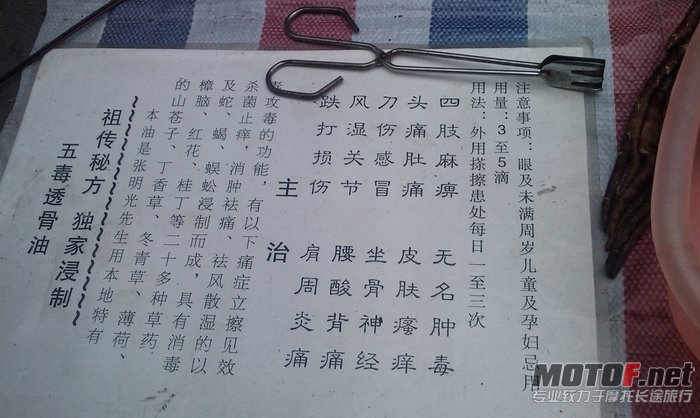 五毒透骨油
祖传秘方 独家浸制
本油是张明光先生用本地特有
的山苍子、丁香草、冬青草、薄荷、
樟脑、红花、桂丁等二十多种草药
及蛇、蝎、蜈蚣浸制而成,具有消毒
杀菌止痒,消肿祛痛、祛风散湿的以
毒攻毒的功能,有以下痛症立擦见效
主治
跌打损伤 肩周炎痛
风湿关节 腰酸背痛
刀伤感冒 坐骨神经
头痛肚痛 皮肤瘙痒
四肢麻痹 无名肿毒
用法:外用搽擦患处每日一至三次
用量:3至5滴
注意事项:眼及未满周岁儿童及孕妇忌用
MOTOF.net
专业致力于摩托长途旅行